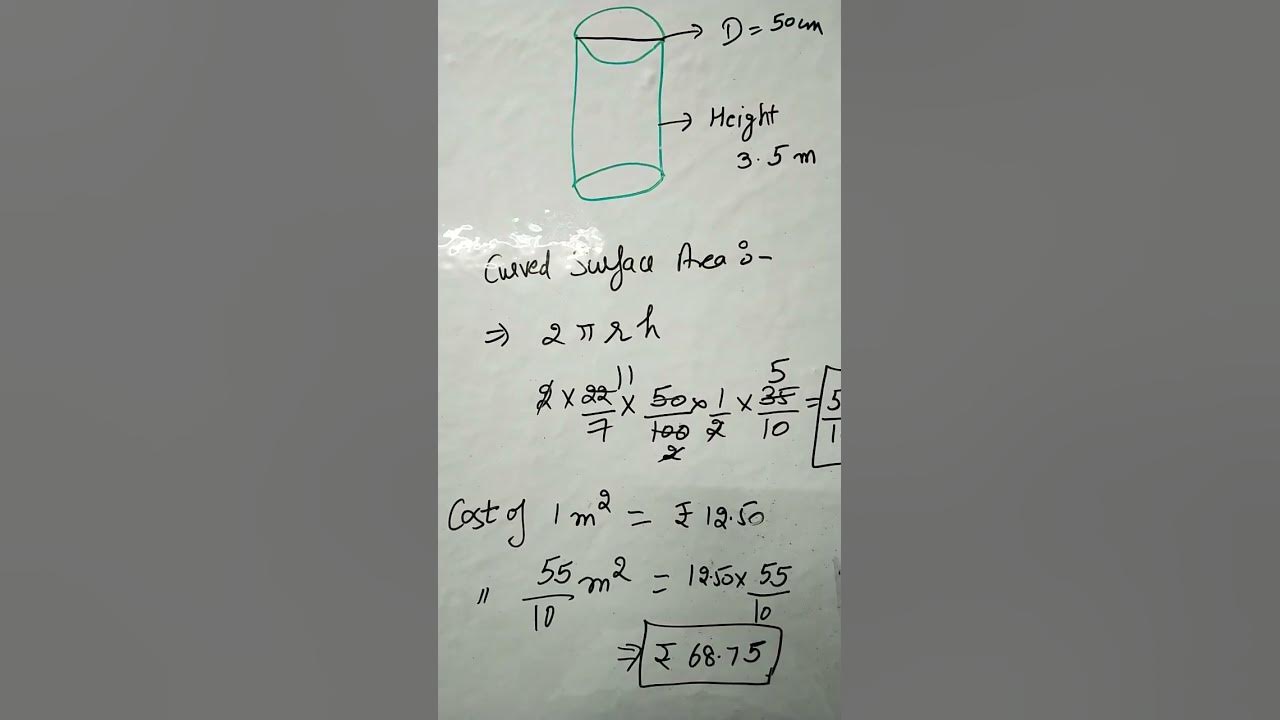 D = 50cm
Height
3.5 m
Curved Surface Area :-
⇒ 2πrh
2 × 22/7 × 50/100 × 1/2 × 35/10 = 5
11 5
2
Cost of 1 m² = ₹ 12.50
" 55/10 m² = 12.50 × 55/10
⇒ ₹ 68.75